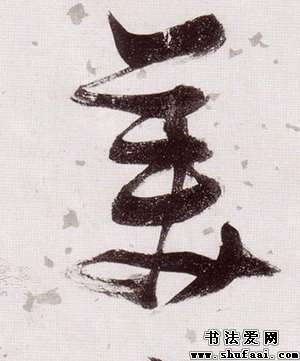 美
书法爱网
www.shufaai.com